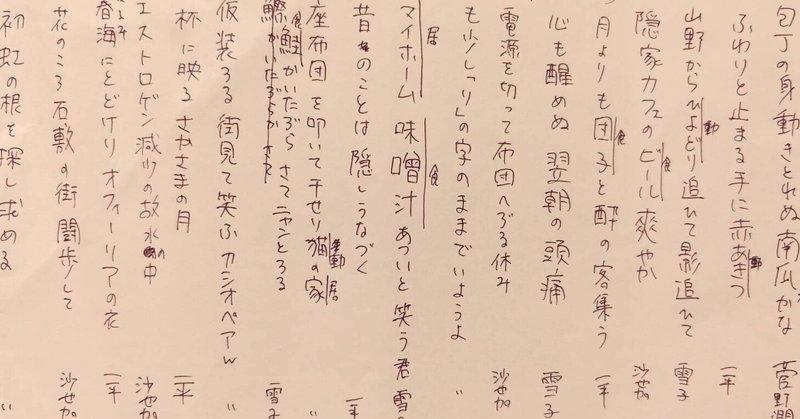 包丁の身動きとれぬ南瓜かな 菅野潤
ふわりと止まる手に赤あきつ 動 一平
山野からひよどり追ひて影追ひて 動 雪子
隠家カフェのビール爽やか 食 沙世加
月よりも団子と酔の客集う 食 一平
心も醒めぬ翌朝の頭痛 雪子
電源を切って布団へずる休み 沙世加
も少し「り」の字のままでいようよ 〃
マイホーム味噌汁あついと笑う君 居 食 雪
昔のことは隠しうなづく 一平
座布団を叩いて干せり猫の家 動 居 〃
鮭かいたぶら さてニャンとする 食 雪子
仮装する街見て笑ふカシオペアw 〃
杯に映るさかさまの月 一平
エストロゲン減少の故水の中 沙世加
春海にとどけりオフィーリアの衣 一平
花のころ石敷の街闊歩して 沙世加
初虹の根を探し求める 〃